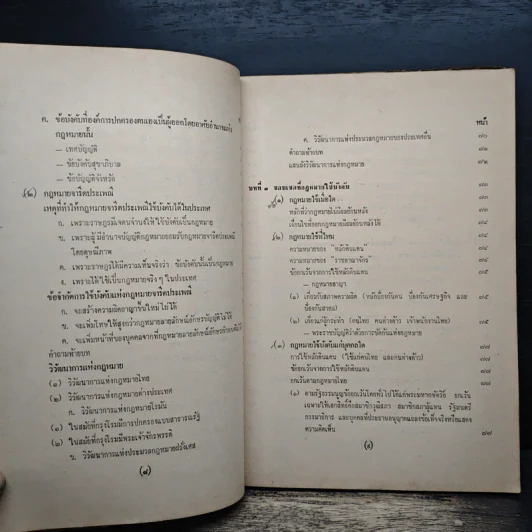 ค. ข้อบังคับที่องค์การปกครองตนเองเป็นผู้ออกโดยอาศัยอำนาจแห่ง
กฎหมายนั้น
— เทศบัญญัติ
— ข้อบังคับสุขาภิบาล
— ข้อบัญญัติจังหวัด
(๒) กฎหมายจารีตประเพณี
เหตุที่ทำให้กฎหมายจารีตประเพณีใช้บังคับได้ในประเทศ
ก. เพราะราษฎรมีเจตจำนงให้ใช้บังคับเป็นกฎหมาย
ข. เพราะผู้มีอำนาจบัญญัติกฎหมายยอมรับกฎหมายจารีตประเพณี
โดยดุษณีภาพ
ค. เพราะราษฎรได้มีความเห็นจริงว่า ข้อบังคับนั้นเป็นกฎหมาย
ง. เพราะได้ใช้เป็นกฎหมายจริง ๆ ในประเทศ
ข้อจำกัดการใช้บังคับแห่งกฎหมายจารีตประเพณี
ก. จะสร้างความผิดอาญาขึ้นใหม่ไม่ได้
ข. จะเพิ่มโทษให้สูงกว่ากฎหมายลายลักษณ์อักษรบัญญัติไว้
ค. จะเพิ่มหน้าที่ของบุคคลจากที่กฎหมายลายลักษณ์อักษร
คำถามท้ายบท
วิวัฒนาการแห่งกฎหมาย
(๑) วิวัฒนาการแห่งกฎหมายไทย
(๒) วิวัฒนาการแห่งกฎหมายต่างประเทศ
ก. วิวัฒนาการแห่งกฎหมายโรมัน
(๑) ในสมัยที่กรุงโรมมีการปกครองแบบสาธารณรัฐ
(๒) ในสมัยที่กรุงโรมมีพระเจ้าจักรพรรดิ
ข. วิวัฒนาการแห่งประมวลกฎหมายฝรั่งเศส
(๘)
หน้า
ค. วิวัฒนาการแห่งประมวลกฎหมายของประเทศอื่น ๗๐
คำถามท้ายบท ๗๒
แผนผังวิวัฒนาการแห่งกฎหมาย ๗๒
บทที่ ๓ ขอบเขตที่กฎหมายใช้บังคับ
(๑) กฎหมายใช้เมื่อใด
หลักที่ว่ากฎหมายไม่มีผลย้อนหลัง
เงื่อนไขที่ออกกฎหมายมีผลย้อนหลังได้
(๒) กฎหมายใช้ที่ไหน ๗๔
ความหมายของ "หลักดินแดน" ๗๔
ความหมายของ "ราชอาณาจักร"
ข้อยกเว้นจากการใช้หลักดินแดน ๗๕
— กฎหมายอาญา
(๑) เกี่ยวกับสภาพความผิด (หลักป้องกันตน ป้องกันเศรษฐกิจ และ
ป้องกันสากล) ๗๕
(๒) เกี่ยวแก่ผู้กระทำ (คนไทย คนต่างด้าว เจ้าพนักงานไทย) ๗๕
— พระราชบัญญัติว่าด้วยการขัดกันแห่งกฎหมาย
(๓) กฎหมายใช้บังคับแก่บุคคลใด ๗๗
การใช้หลักดินแดน (ใช้แก่คนไทย และคนต่างด้าว) ๗๗
ข้อยกเว้นจากการใช้หลักดินแดน ๗๗
ยกเว้นตามกฎหมายไทย
(๑) ตามรัฐธรรมนูญข้อยกเว้นโดยทั่วไปได้แก่พระมหากษัตริย์ ยกเว้น
เฉพาะให้เอกสิทธิ์คือสมาชิกวุฒิสภา สมาชิกสภาผู้แทน รัฐมนตรี
กรรมาธิการ และบุคคลที่ประธานอนุญาตแถลงข้อเท็จจริงหรือแสดง
ความคิดเห็น ๗๗
(๙)